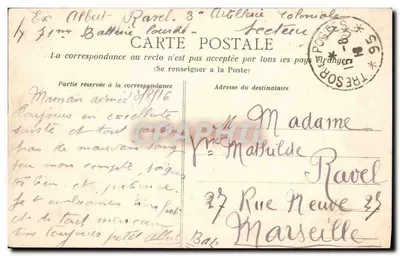 Ex Albert Ravel 3e Artillerie Coloniale
71me Batterie Lourde Secteur
CARTE POSTALE
La correspondance au recto n'est pas acceptée par tous les pays étrangers
(Se renseigner à la Poste)
TRESOR ET POSTES
* 95 *
Partie réservée à la correspondance
Adresse du destinataire
Maman aimée 13/8/16
Toujours en excellente
santé et tout
pas de mauvais sang
mon compte, soigne
toi bien et
Je
et de tout mon cœur
ton toujours petit Albert
M Madame
Vve Mathilde
Ravel
27 Rue Neuve 27
Bas Marseille